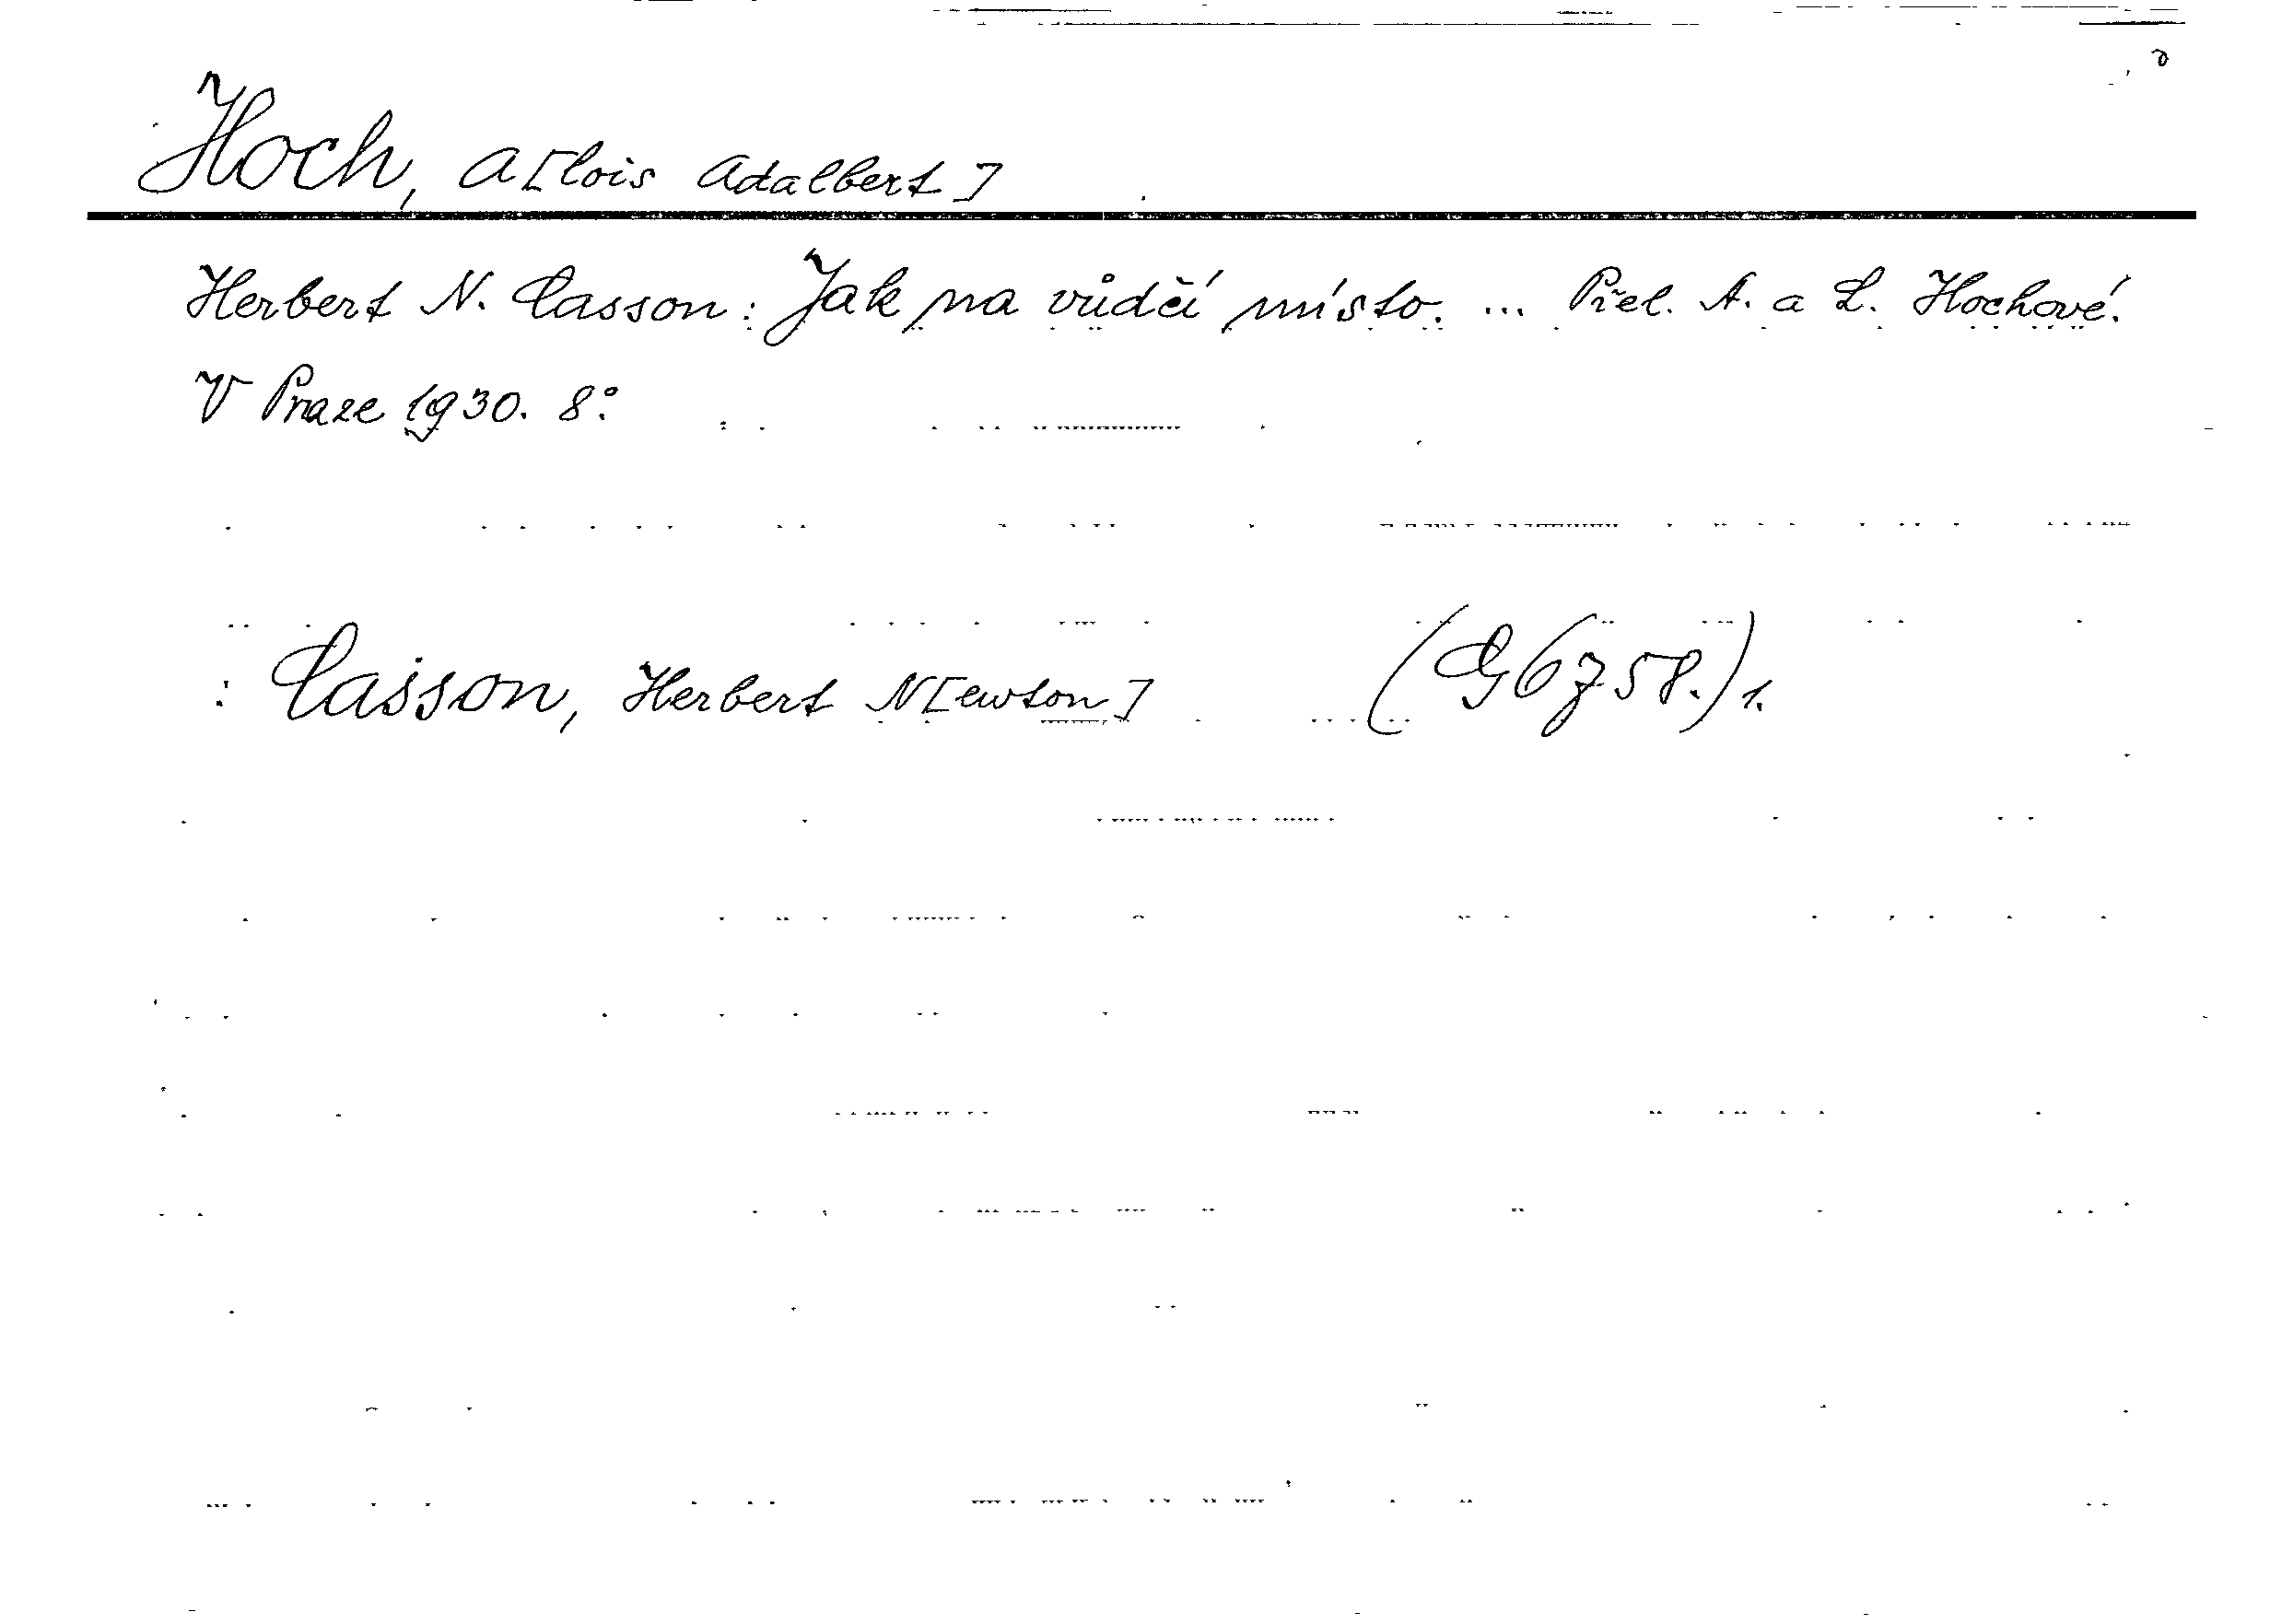 Hoch, A[lois Adalbert]
Herbert N. Casson: Jak na vůdčí místo. ... Přel. A. a L. Hochové.
V Praze 1930. 8°.
: Casson, Herbert N[ewton] (G 6758.) 1.